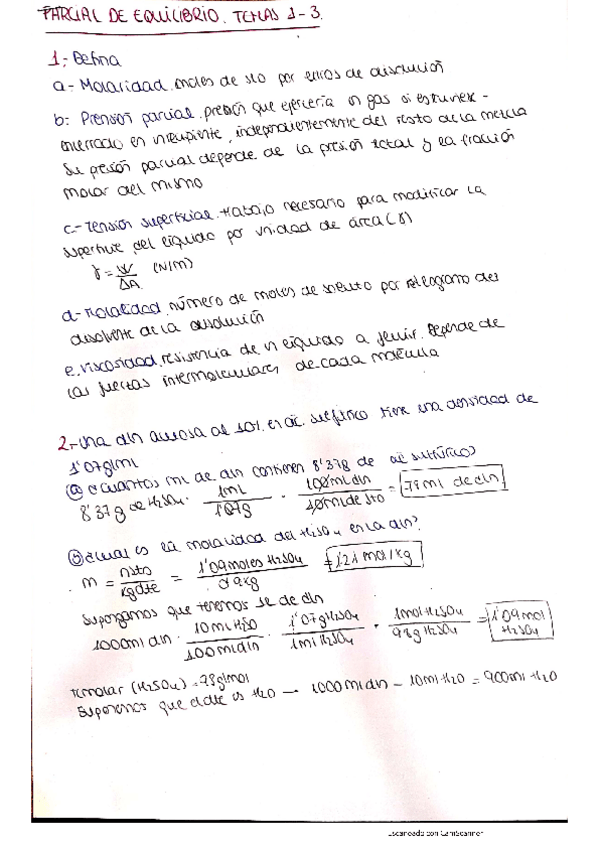 PARCIAL DE EQUILIBRIO. TEMAS 1-3.
1.- Defina
a.- Molaridad. moles de sto por litros de disolución
b.- Presión parcial. presión que ejercería un gas si estuviera
encerrado en un recipiente, independientemente del resto de la mezcla
Su presión parcial depende de la presión total y la fracción
molar del mismo
c.- Tensión superficial. trabajo necesario para modificar la
superficie del líquido por unidad de área (γ)
γ = W/ΔA (N/m)
d.- Molalidad. número de moles de soluto por kilogramo del
disolvente de la disolución
e. viscosidad. resistencia de un líquido a fluir. Depende de
las fuerzas intermoleculares de cada molécula
2.- Una dln acuosa al 10%. en ác. sulfúrico tiene una densidad de
1'07g/ml
ⓐ ¿Cuántos ml de dln contienen 8'37g de ác sulfúrico?
8'37 g de H2SO4 · 1ml/1'07g · 100ml dln/10ml de sto = 78ml de dln
ⓑ ¿Cuál es la molalidad del H2SO4 en la dln?
m = nsto/kgdte = 1'09moles H2SO4/0'9kg = 1'21 mol/kg
Supongamos que tenemos 1L de dln
1000ml dln · 10ml H2SO/100ml dln · 1'07g H2SO4/1ml H2SO4 · 1mol H2SO4/98g H2SO4 = 1'09mol H2SO4
(H2SO4) = 98g/mol
Suponemos que el dte es H2O → 1000ml dln - 10ml H2O = 900ml H2O
Escaneado con CamScanner